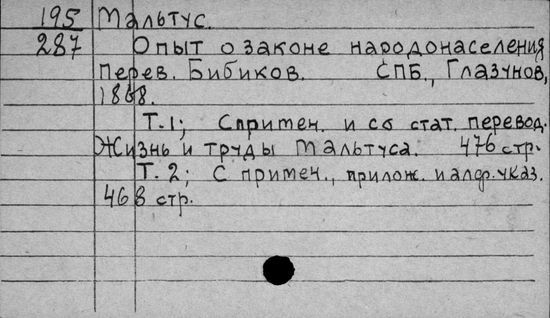 195 Мальтус.
287 Опыт о законе народонаселения
Перев. Бибиков. СПБ., Глазунов,
1868.
Т.1; С примеч. и со стат. перевод.
Жизнь и труды Мальтуса. 476 стр.
Т. 2; С примеч., прилож. и алф. указ.
468 стр.